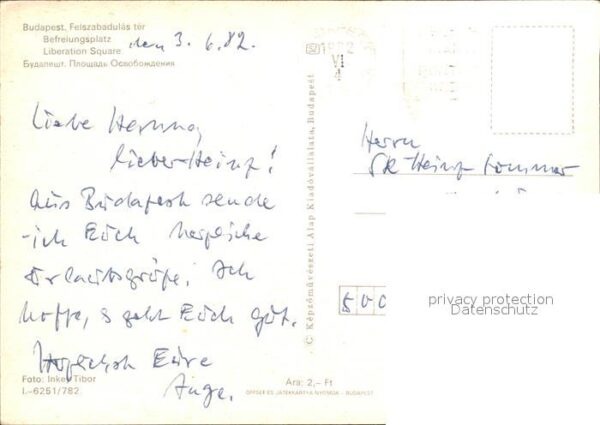 Budapest. Felszabadulás tér
Befreiungsplatz
Liberation Square
Будапешт. Площадь Освобождения
den 3. 6. 82.
1982
VI
4
Liebe Henny,
lieber Heinz!
Aus Budapest sende
ich Euch herzliche
Urlaubsgrüße. Ich
hoffe, es geht Euch gut.
Herzlichst Eure
Inge.
Herrn
Heinz Sommer
500
privacy protection
Datenschutz
© Képzőművészeti Alap Kiadóvállalata, Budapest
Foto: Inkey Tibor
I.-6251/782
Ára: 2,- Ft
OFFSET ÉS JÁTÉKKÁRTYA NYOMDA - BUDAPEST